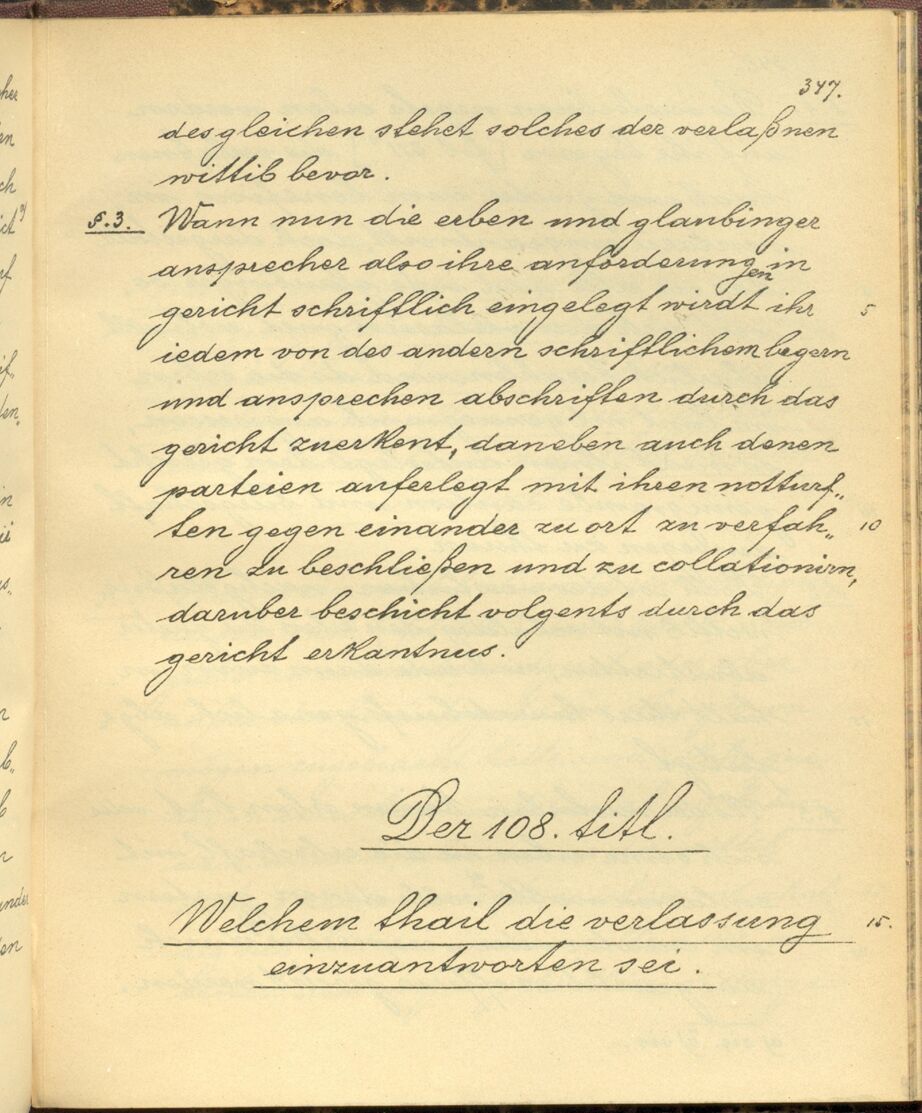 347.
desgleichen stehet solches der verlaßnen
wittib bevor.
§.3. Wann nun die erben und glaubinger
ansprecher also ihre anforderungen in
gericht schriftlich eingelegt wirdt ihr 5
iedem von des andern schriftlichem begern
und ansprechen abschriften durch das
gericht zuerkent, daneben auch denen
parteien auferlegt mit ihren notturf„
ten gegen einander zu ort zu verfah„ 10
ren zu beschließen und zu collationirn,
daruber beschicht volgents durch das
gericht erkantnus.
Der 108. titl.
Welchem thail die verlassung 15.
einzuantworten sei.